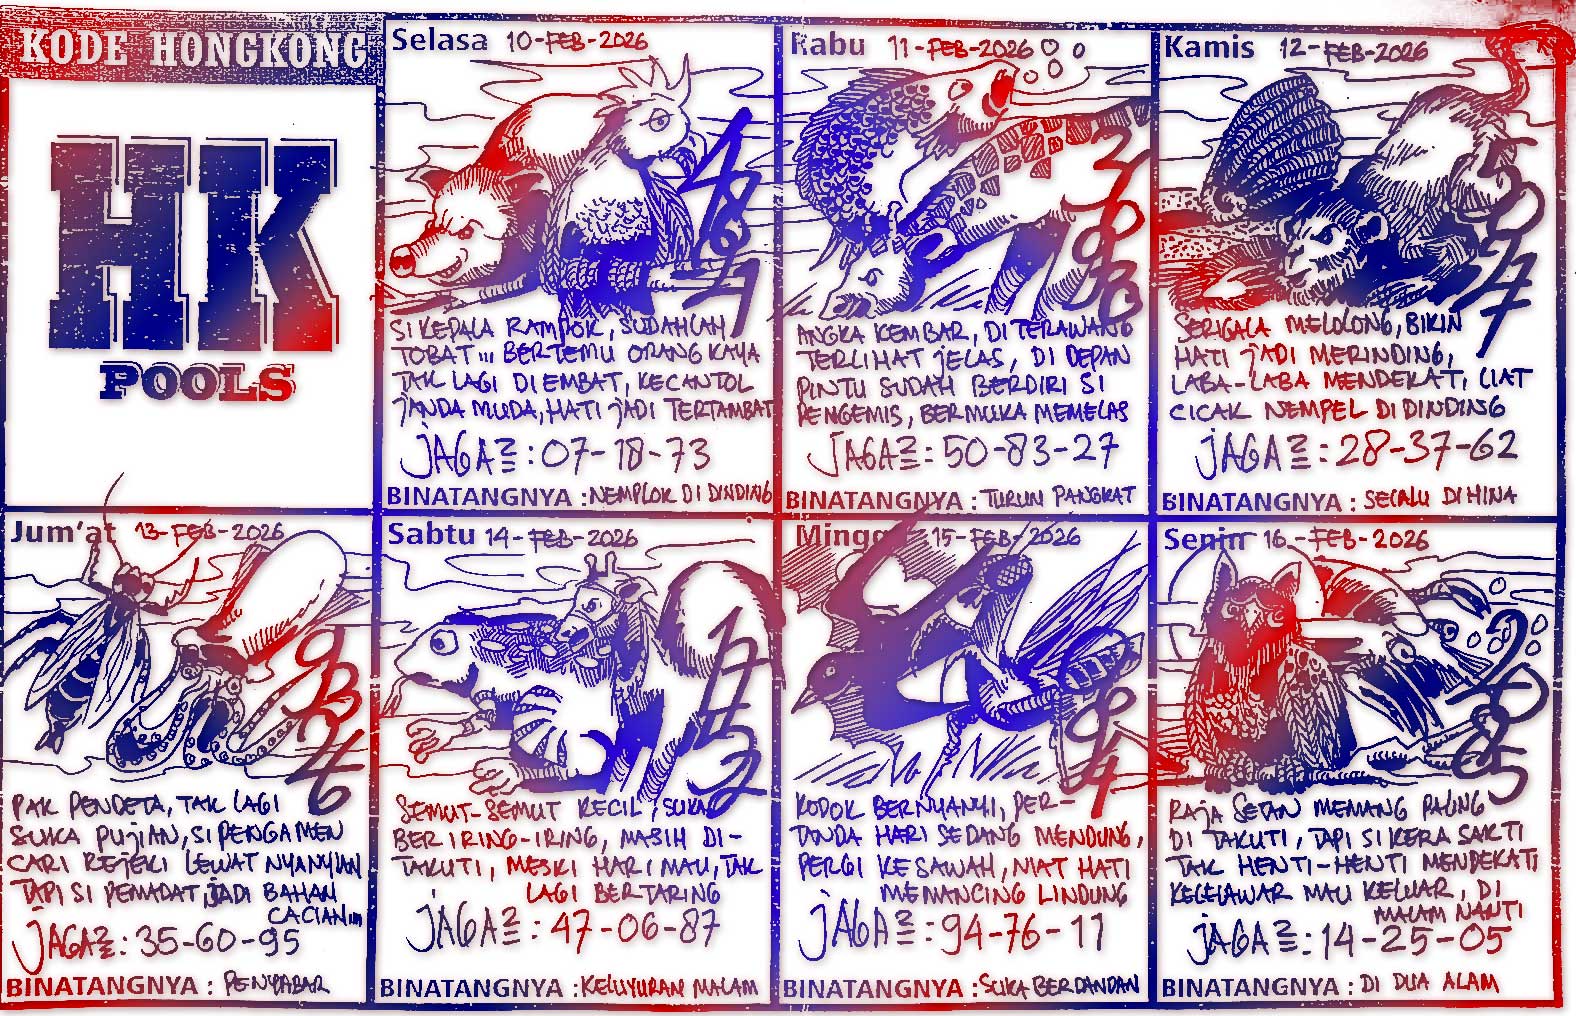 KODE HONGKONG
HK
POOLS
Selasa 10-FEB-2026
SI KEPALA RAMPOK, SUDAHLAH
TOBAT ... BERTEMU ORANG KAYA
TAK LAGI DI EMBAT, KECANTOL
JANDA MUDA, HATI JADI TERTAMBAT
JAGA2 : 07-18-73
BINATANGNYA : NEMPLOK DI DINDING
Rabu 11-FEB-2026
ANGKA KEMBAR, DI TERAWANG
TERLIHAT JELAS, DI DEPAN
PINTU SUDAH BERDIRI SI
PENGEMIS, BERMUKA MEMELAS
JAGA2 : 50-83-27
BINATANGNYA : TURUN PANGKAT
Kamis 12-FEB-2026
SERIGALA MELOLONG, BIKIN
HATI JADI MERINDING,
LABA-LABA MENDEKATI, LIAT
CICAK NEMPEL DI DINDING
JAGA2 : 28-37-62
BINATANGNYA : SELALU DI HINA
Jum'at 13-FEB-2026
PAK PENDETA, TAK LAGI
SUKA PUJIAN, SI PENGAMEN
CARI REJEKI LEWAT NYANYIAN
TAPI SI PEMADAT JADI BAHAN
CACIAN...
JAGA2 : 35-60-95
BINATANGNYA : PENYABAR
Sabtu 14-FEB-2026
SEMUT-SEMUT KECIL, SUKA
BERIRING-IRING, MASIH DI-
TAKUTI, MESKI HARIMAU, TAK
LAGI BERTARING
JAGA2 : 47-06-87
BINATANGNYA : KELUYURAN MALAM
Minggu 15-FEB-2026
KODOK BERNYANYI, PER-
TANDA HARI SEDANG MENDUNG,
PERGI KE SAWAH, NIAT HATI
MEMANCING LINDUNG
JAGA2 : 94-76-11
BINATANGNYA : SUKA BERDANDAN
Senin 16-FEB-2026
RAJA SETAN MEMANG PALING
DI TAKUTI, TAPI SI KERA SAKTI
TAK HENTI-HENTI MENDEKATI
KELELAWAR MAU KELUAR, DI
MALAM NANTI
JAGA2 : 14-25-05
BINATANGNYA : DI DUA ALAM